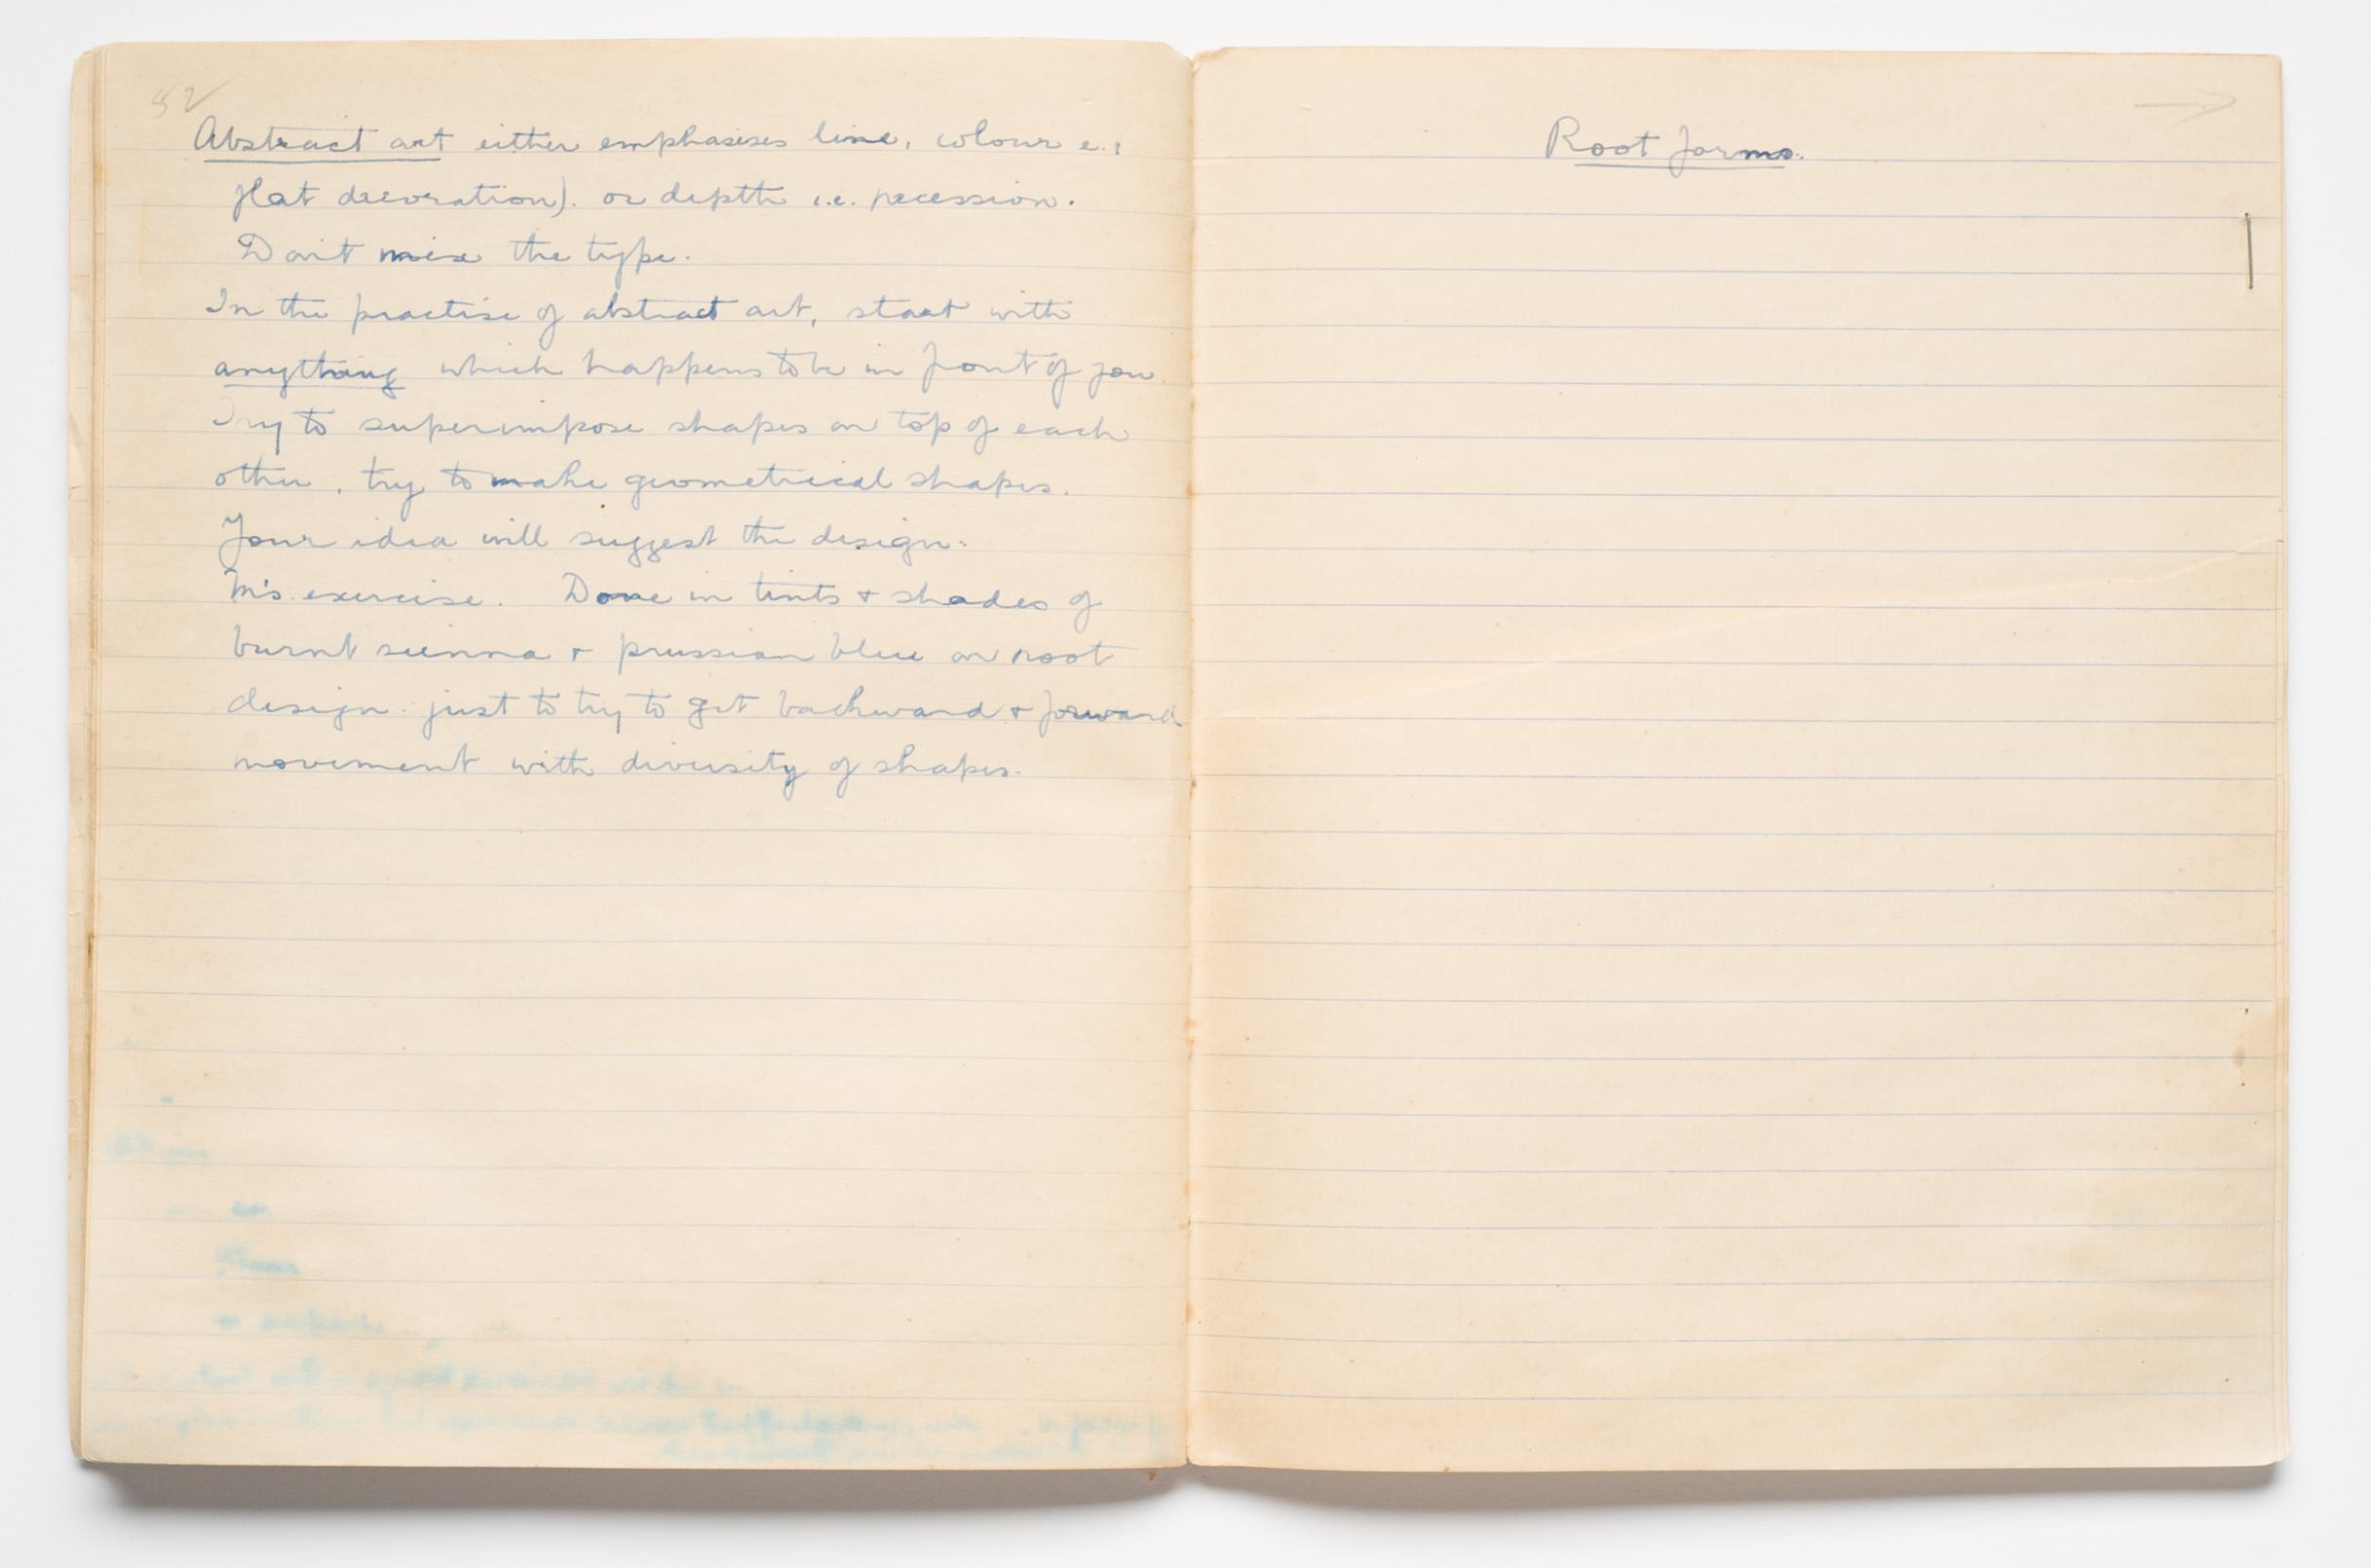 52
Abstract art either emphasises line, colour
flat decoration). or depth i.e. recession.
Don't mix the type.
In the practise of abstract art, start with
anything which happens to be in front of you.
Try to superimpose shapes on top of each
other, try to make geometrical shapes.
Your idea will suggest the design.
M's exercise. Done in tints + shades of
burnt sienna + prussian blue on root
design just to try to get backward + forward
movement with diversity of shapes.
Root forms.